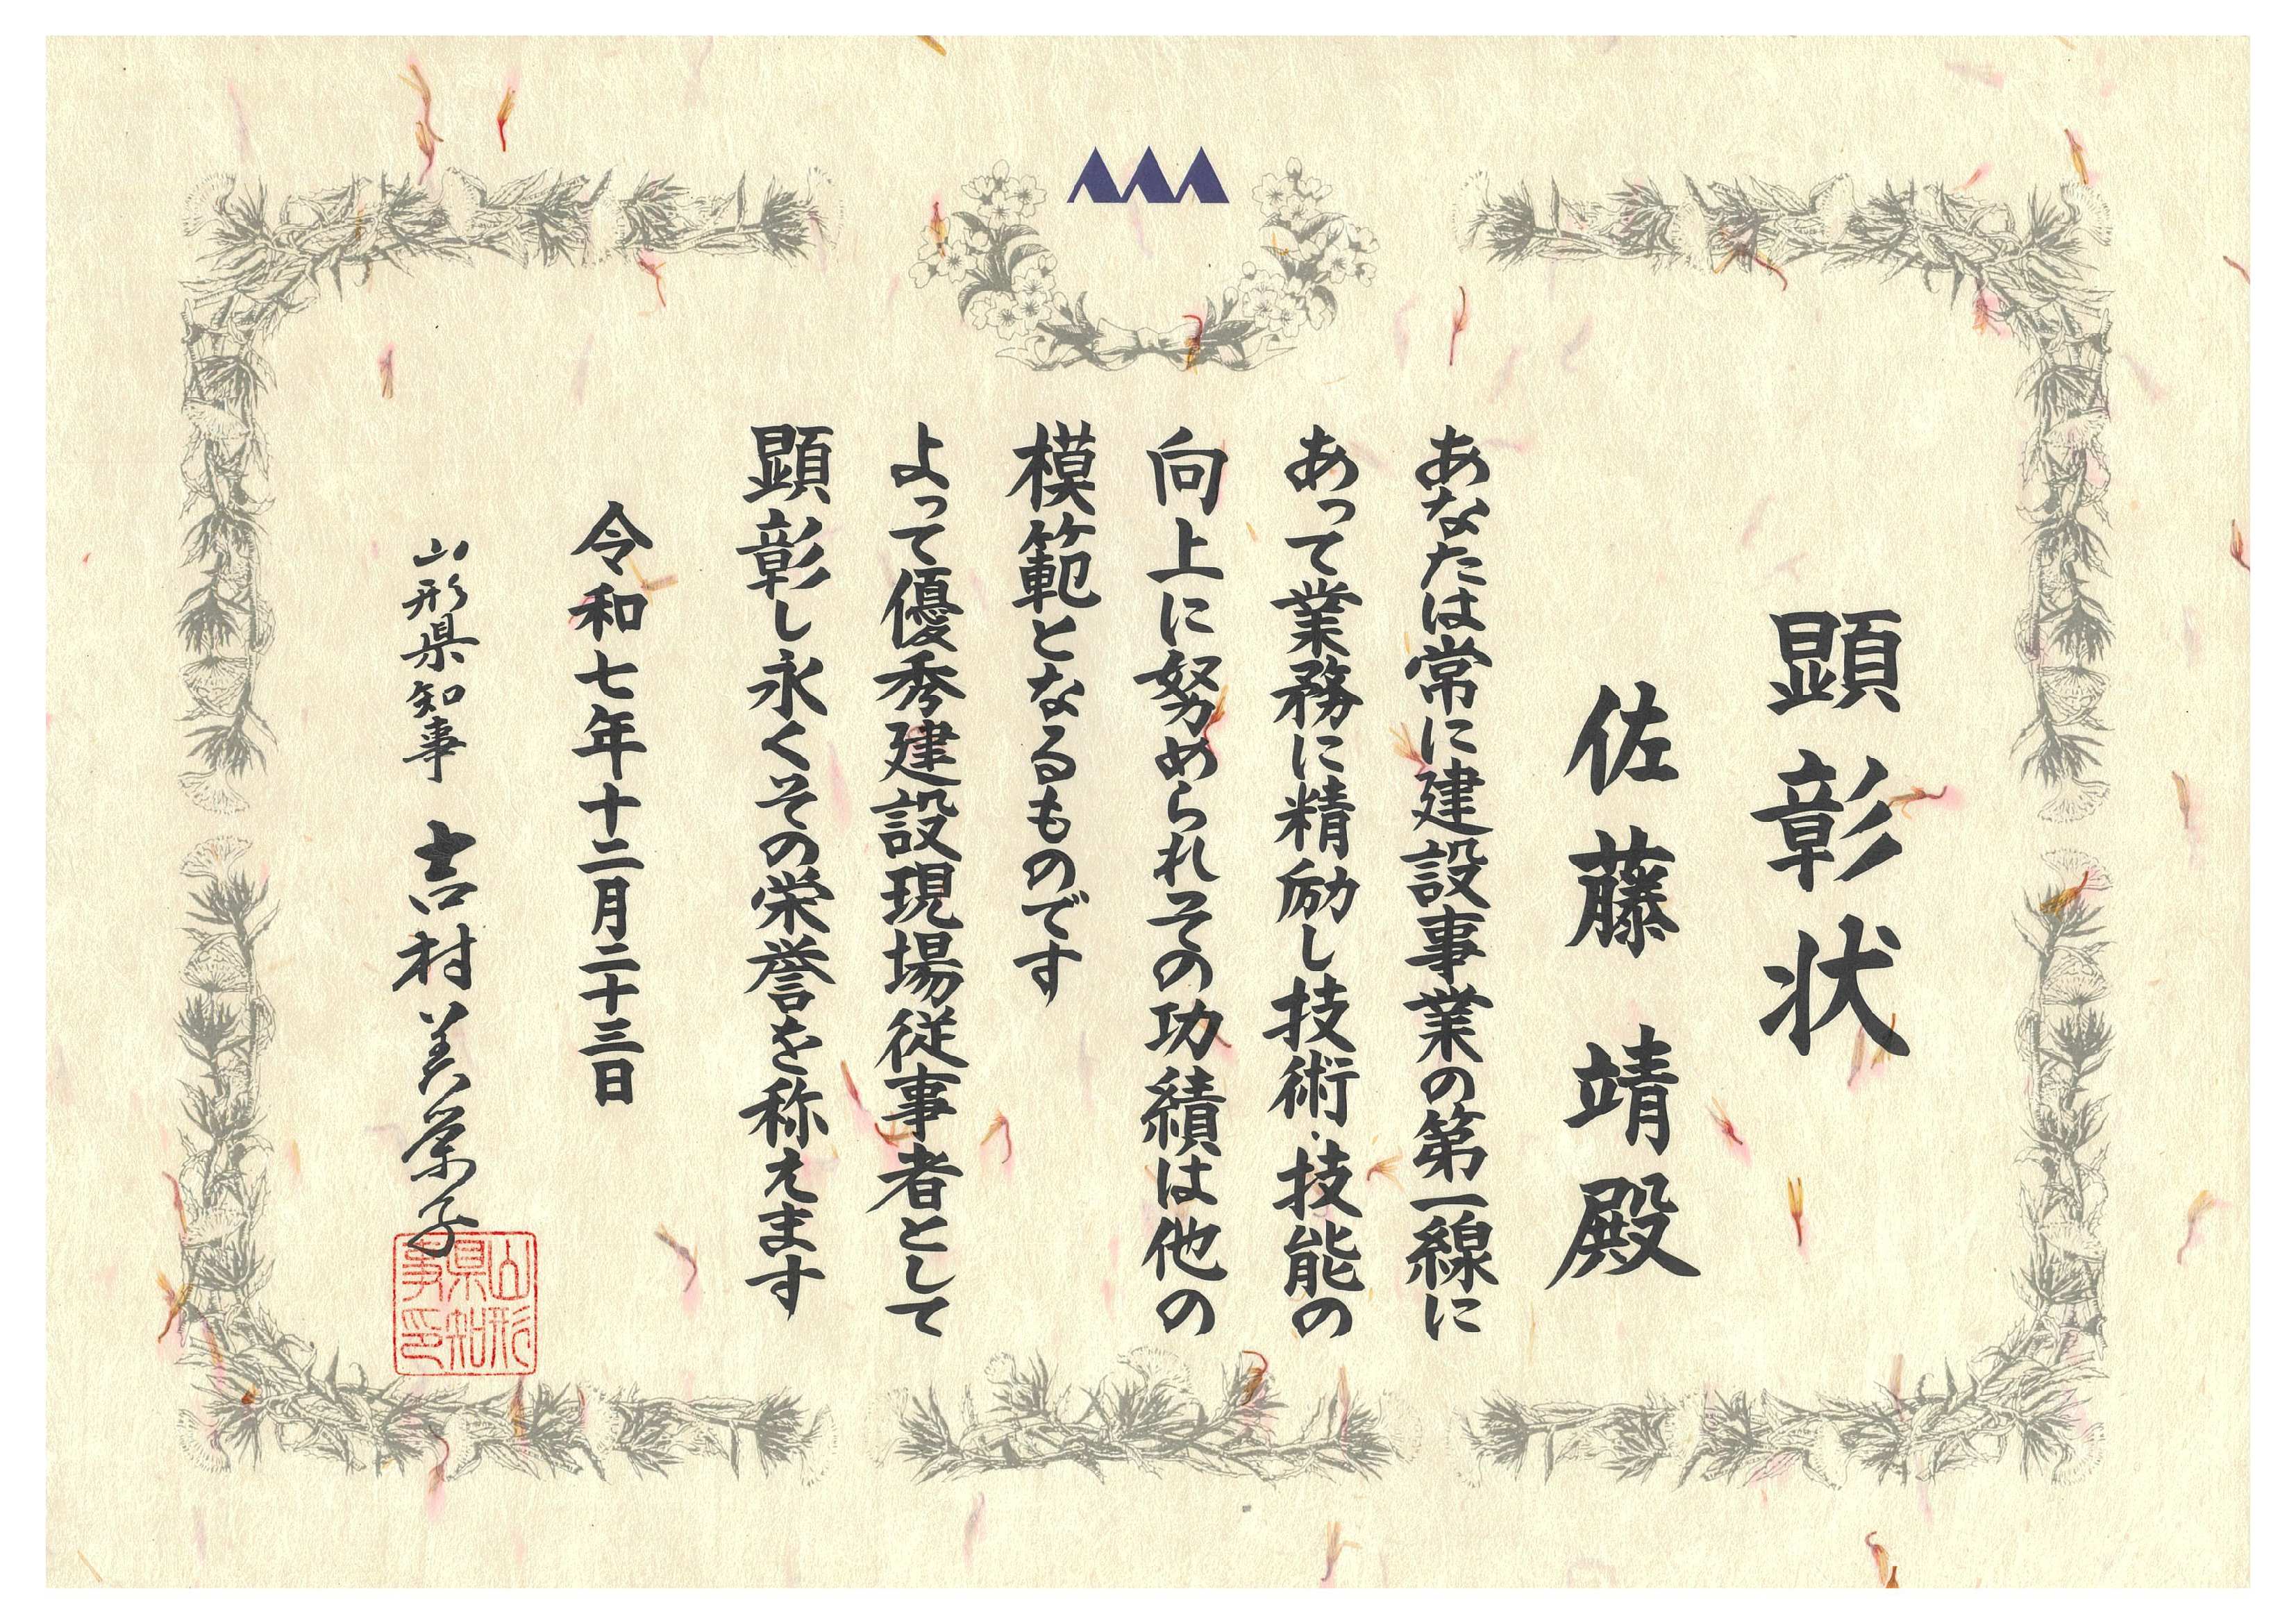 顕彰状
佐藤 靖 殿
あなたは常に建設事業の第一線に
あって業務に精励し技術・技能の
向上に努められその功績は他の
模範となるものです
よって優秀建設現場従事者として
顕彰し永くその栄誉を称えます
令和七年十二月二十三日
山形県知事 吉村美栄子
山形
県知
事印